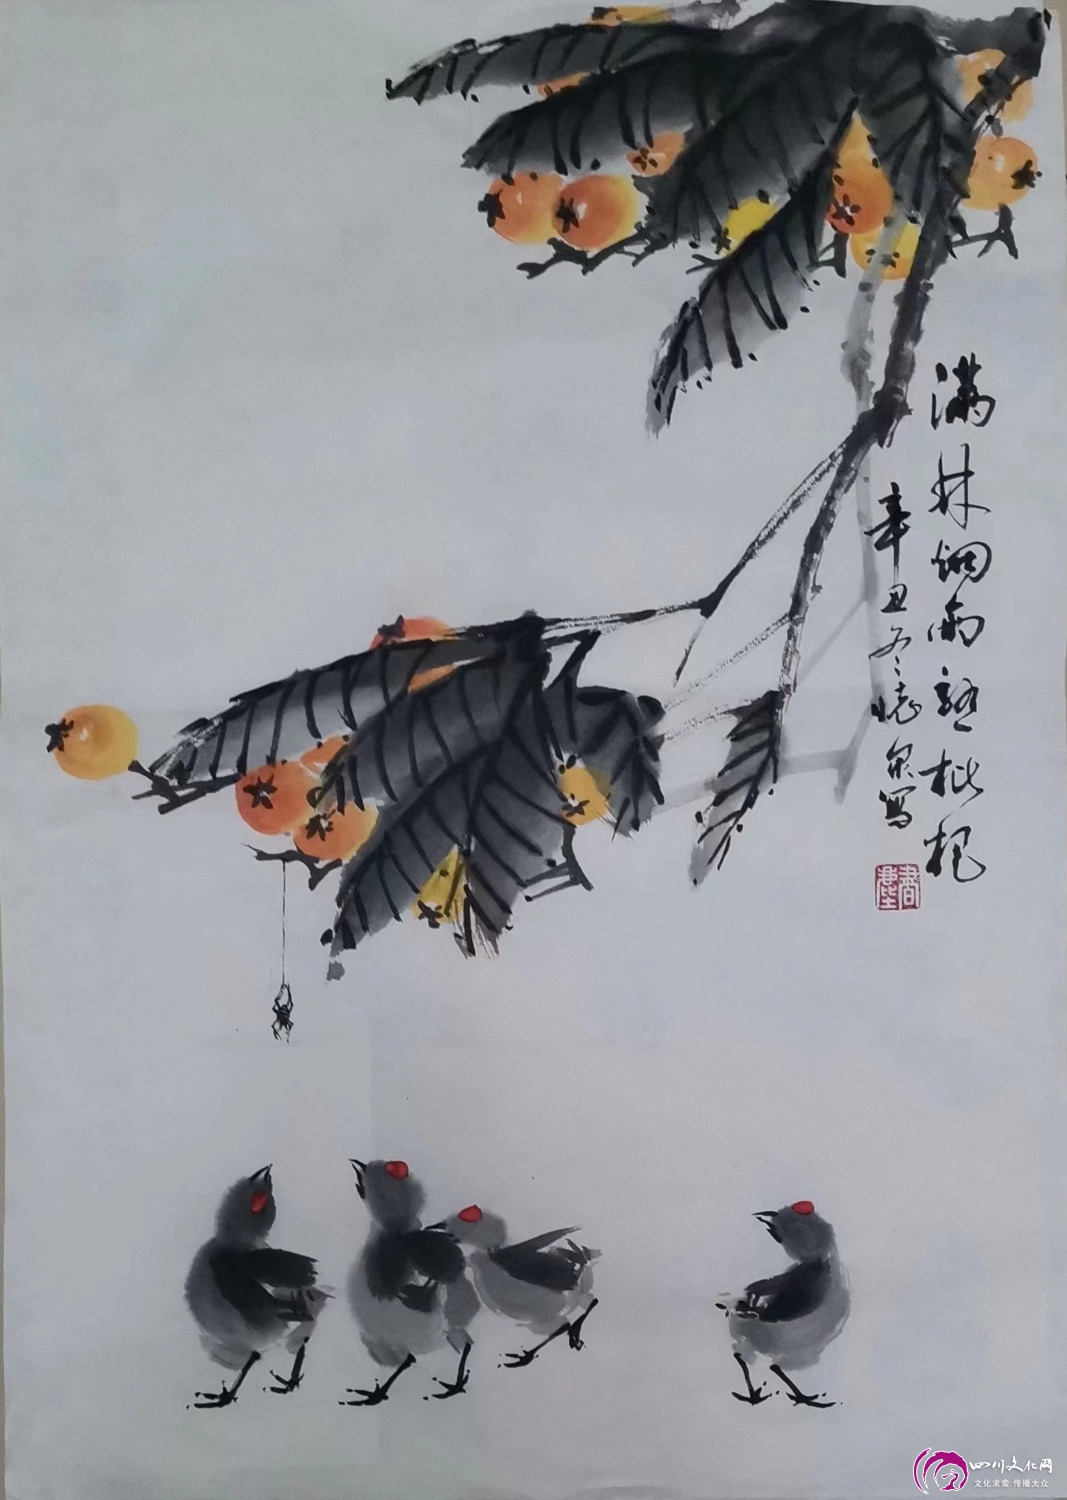 满林烟雨熟枇杷
辛丑冬 德泉写
四川文化网
文化求索 传播大众